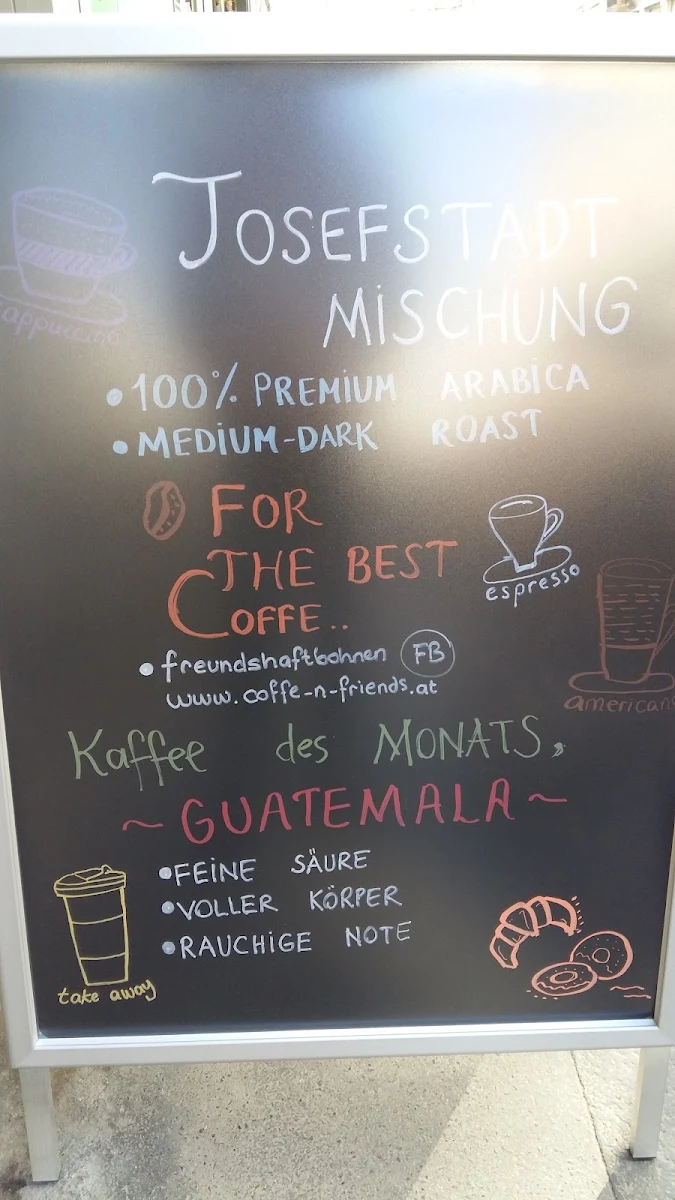 JOSEFSTADT
MISCHUNG
cappuccino
• 100% PREMIUM ARABICA
• MEDIUM-DARK ROAST
FOR
THE BEST
COFFE..
espresso
• freundshaftbohnen FB
www.coffe-n-friends.at
americano
Kaffee des MONATS,
~GUATEMALA~
• FEINE SÄURE
• VOLLER KÖRPER
• RAUCHIGE NOTE
take away